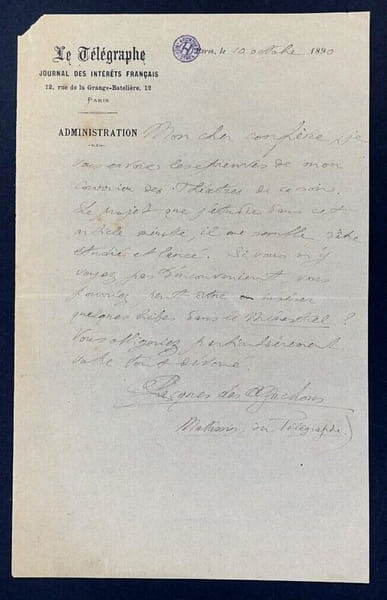 Le Télégraphe
JOURNAL DES INTÉRÊTS FRANÇAIS
12, rue de la Grange-Batelière, 12
PARIS
Paris, le 10 octobre 1890
ADMINISTRATION
Mon cher confrère, je
vous envoie les épreuves de mon
courrier des Théâtres de ce soir.
Le projet que j'étudie dans cet
article mérite, il me semble, d'être
étudié et lancé. Si vous n'y
voyez pas d'inconvénient, vous
pourriez peut être en insérer
quelques dans le Ménestrel ?
Vous obligeriez particulièrement
votre tout dévoué.
Jacques des Gachons
du Télégraphe)